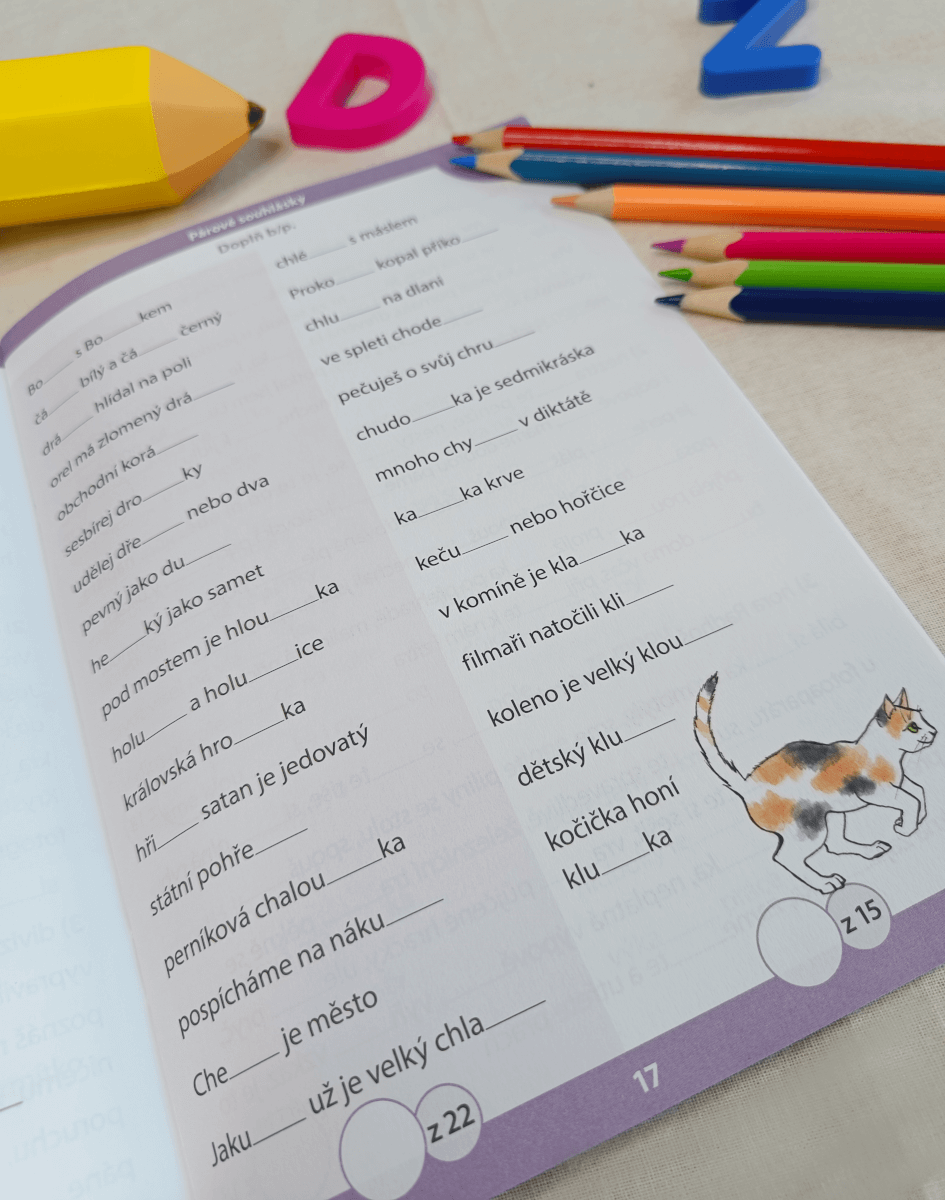 Párové souhlásky
Doplň b/p.
Bo____ s Bo____kem
čá____ bílý a čá____ černý
drá____ hlídal na poli
orel má zlomený drá____
obchodní korá____
sesbírej dro____ky
udělej dře____ nebo dva
pevný jako du____
he____ký jako samet
pod mostem je hlou____ka
holu____ a holu____ice
královská hro____ka
hři____ satan je jedovatý
státní pohře____
perníková chalou____ka
pospícháme na náku____
Che____ je město
Jaku____ už je velký chla____
z 22
chlé____ s máslem
Proko____ kopal příko____
chlu____ na dlani
ve spleti chode____
pečuješ o svůj chru____
chudo____ka je sedmikráska
mnoho chy____ v diktátě
ka____ka krve
keču____ nebo hořčice
v komíně je kla____ka
filmaři natočili kli____
koleno je velký klou____
dětský klu____
kočička honí
klu____ka
z 15
17